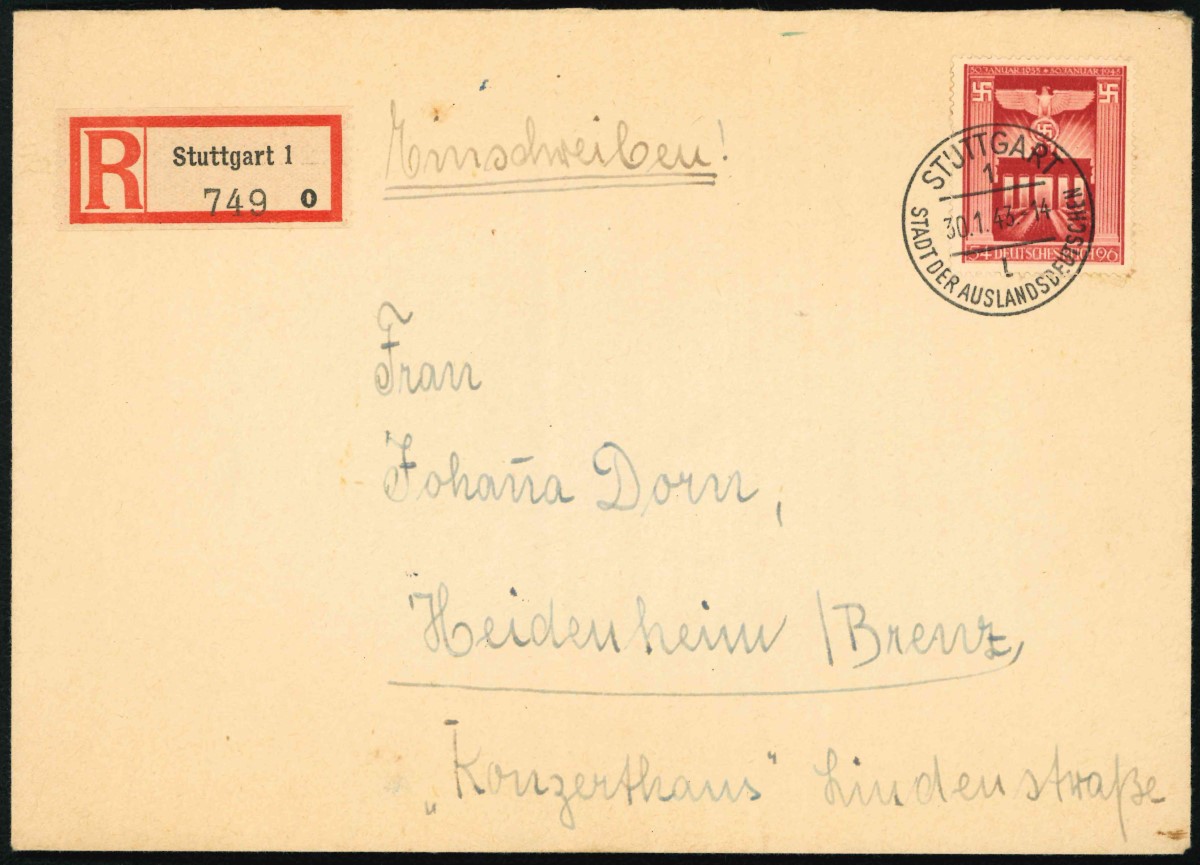 R
Stuttgart 1
749 o
Einschreiben!
30. JANUAR 1933 * 30. JANUAR 1943
54 DEUTSCHES REICH 96
STUTTGART
1
30.1.43.-14
l
STADT DER AUSLANDSDEUTSCHEN
Frau
Johan̄a Dorn,
Heidenheim / Brenz,
„Konzerthaus“ Lindenstraße